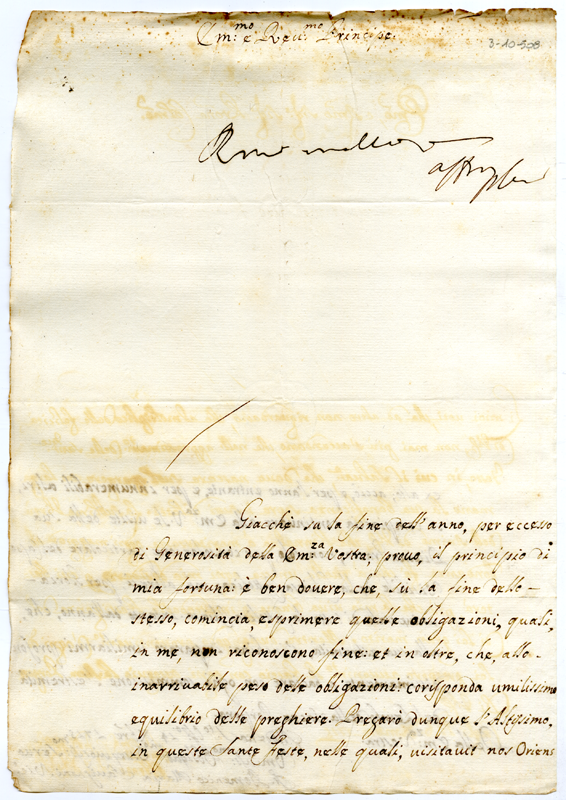 Em:mo e Reu:mo Principe.
3-10-508
Giacchè su la fine dell'anno, per eccesso
di Generosità della Em:za Vostra, prouo, il principio di
mia fortuna: è ben douere, che, sù la fine dello
stesso, comincia, esprimere quelle obligazioni, quali,
in me, non riconoscono fine: et in oltre, che, allo
inarriuabile peso delle obligazioni: corisponda umilissimo
equilibrio delle preghiere. Pregarò dunque l'Altissimo,
in queste Sante feste, nelle quali, visitauit nos Oriens